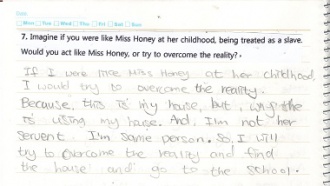 Date
Mon Tue Wed Thu Fri Sat Sun
7. Imagine if you were like Miss Honey at her childhood, being treated as a slave.
Would you act like Miss Honey, or try to overcome the reality?
If I were like Miss Honey at her childhood.
I would try to overcome the reality.
Because, this is my house, but, why she
is using my house. And, I'm not her
servent. I'm same person. So I will
try to overcome the reality and find
the house and go to the school.